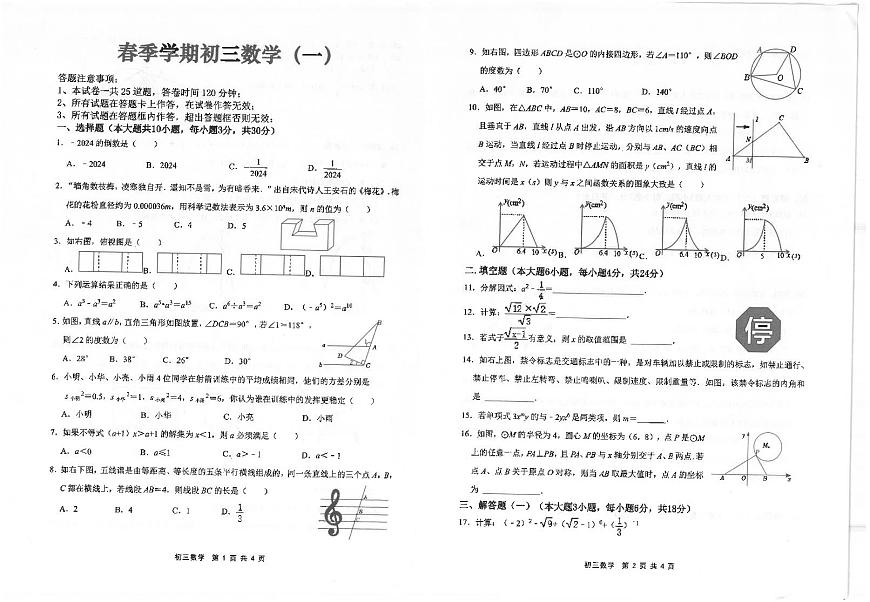 春季学期初三数学（一）
答题注意事项：
1、本试卷一共 25 道题，答卷时间 120 分钟；
2、所有试题在答题卡上作答，在试卷作答无效；
3、所有试题在答题框内作答，超出答题框否则无效；
一、选择题（本大题共10小题，每小题3分，共30分）
1. －2024 的倒数是（ ）
A. －2024 B. 2024 C. －1/2024 D. 1/2024
2. “墙角数枝梅，凌寒独自开．遥知不是雪，为有暗香来．”出自宋代诗人王安石的《梅花》．梅
花的花粉直径约为 0.000036m，用科学记数法表示为 3.6×10ⁿm，则 n 的值为（ ）
A. －4 B. －5 C. 4 D. 5
3. 如右图，俯视图是（ ）
A. B. C. D.
4. 下列运算结果正确的是（ ）
A. a⁵－a³＝a² B. a⁵•a³＝a¹⁵ C. a⁶÷a³＝a² D. （－a⁵）²＝a¹⁰
5. 如图，直线 a∥b，直角三角形如图放置，∠DCB＝90°，若∠1＝118°，
则∠2 的度数为（ ）
A. 28° B. 38° C. 26° D. 30°
6. 小明、小华、小亮、小雨 4 位同学在射箭训练中的平均成绩相同，他们的方差分别是
s小明²＝0.5，s小华²＝1，s小亮²＝4，s小雨²＝6，你认为谁在训练中的发挥更稳定（ ）
A. 小明 B. 小华 C. 小亮 D. 小雨
7. 如果不等式（a+1）x＞a+1 的解集为 x＜1，则 a 必须满足（ ）
A. a＜0 B. a≤1 C. a＞－1 D. a＜－1
8. 如右下图，五线谱是由等距离、等长度的五条平行横线组成的，同一条直线上的三个点 A，B，
C 都在横线上，若线段 AB＝4，则线段 BC 的长是（ ）
A. 2 B. 4 C. 1 D. 1/3
初三数学 第 1 页 共 4 页
9. 如右图，四边形 ABCD 是⊙O 的内接四边形，若∠A＝110°，则∠BOD
的度数为（ ）
A. 40° B. 70° C. 110° D. 140°
10. 如图，在△ABC 中，AB＝10，AC＝8，BC＝6，直线 l 经过点 A，
且垂直于 AB，直线 l 从点 A 出发，沿 AB 方向以 1cm/s 的速度向点
B 运动，当直线 l 经过点 B 时停止运动，分别与 AB、AC（BC）相
交于点 M，N，若运动过程中△AMN 的面积是 y（cm²），直线 l 的
运动时间是 x（s）则 y 与 x 之间函数关系的图象大致是（ ）
A. y(cm²) O 6.4 10 x(s) B. y(cm²) O 6.4 10 x(s) C. y(cm²) O 6.4 10 x(s) D. y(cm²) O 5 10 x(s)
二.填空题（本大题6小题，每小题4分，共24分）
11. 分解因式：a²－1/4＝ .
12. 计算：√12×√2/√3＝ .
13. 若式子√x-1/2有意义，则 x 的取值范围是 .
停
14. 如右上图，禁令标志是交通标志中的一种，是对车辆加以禁止或限制的标志，如禁止通行、
禁止停车、禁止左转弯、禁止鸣喇叭、限制速度、限制重量等．如图，该禁令标志的内角和
是 .
15. 若单项式 3xᵐy 的与－2yzᵇ 是同类项，则 m＝ .
16. 如图，⊙M 的半径为 4，圆心 M 的坐标为（6，8），点 P 是⊙M
上的任意一点，PA⊥PB，且 PA、PB 与 x 轴分别交于 A、B 两点．若
点 A、点 B 关于原点 O 对称，则当 AB 取最大值时，点 A 的坐标
为 .
三、解答题（一）（本大题3小题，每小题6分，共18分）
17. 计算：（－2）²－√9+（√2－1）⁰+（1/3）⁻¹
初三数学 第 2 页 共 4 页